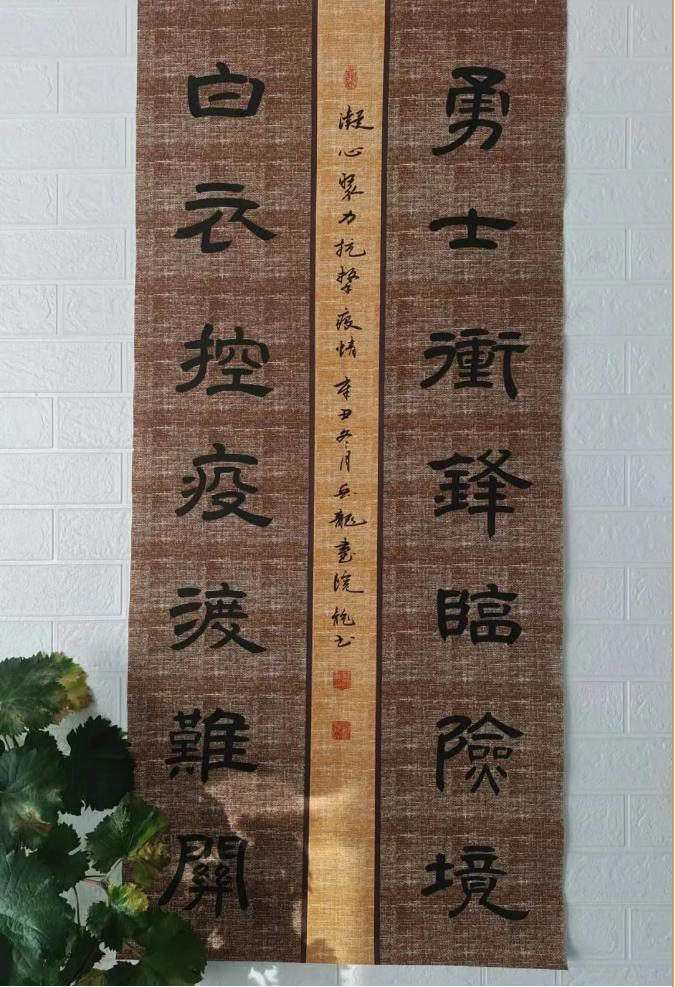 勇士衝鋒臨險境
凝心聚力抗擊疫情 辛丑冬月兵龍書院 乾書
白衣控疫渡難關